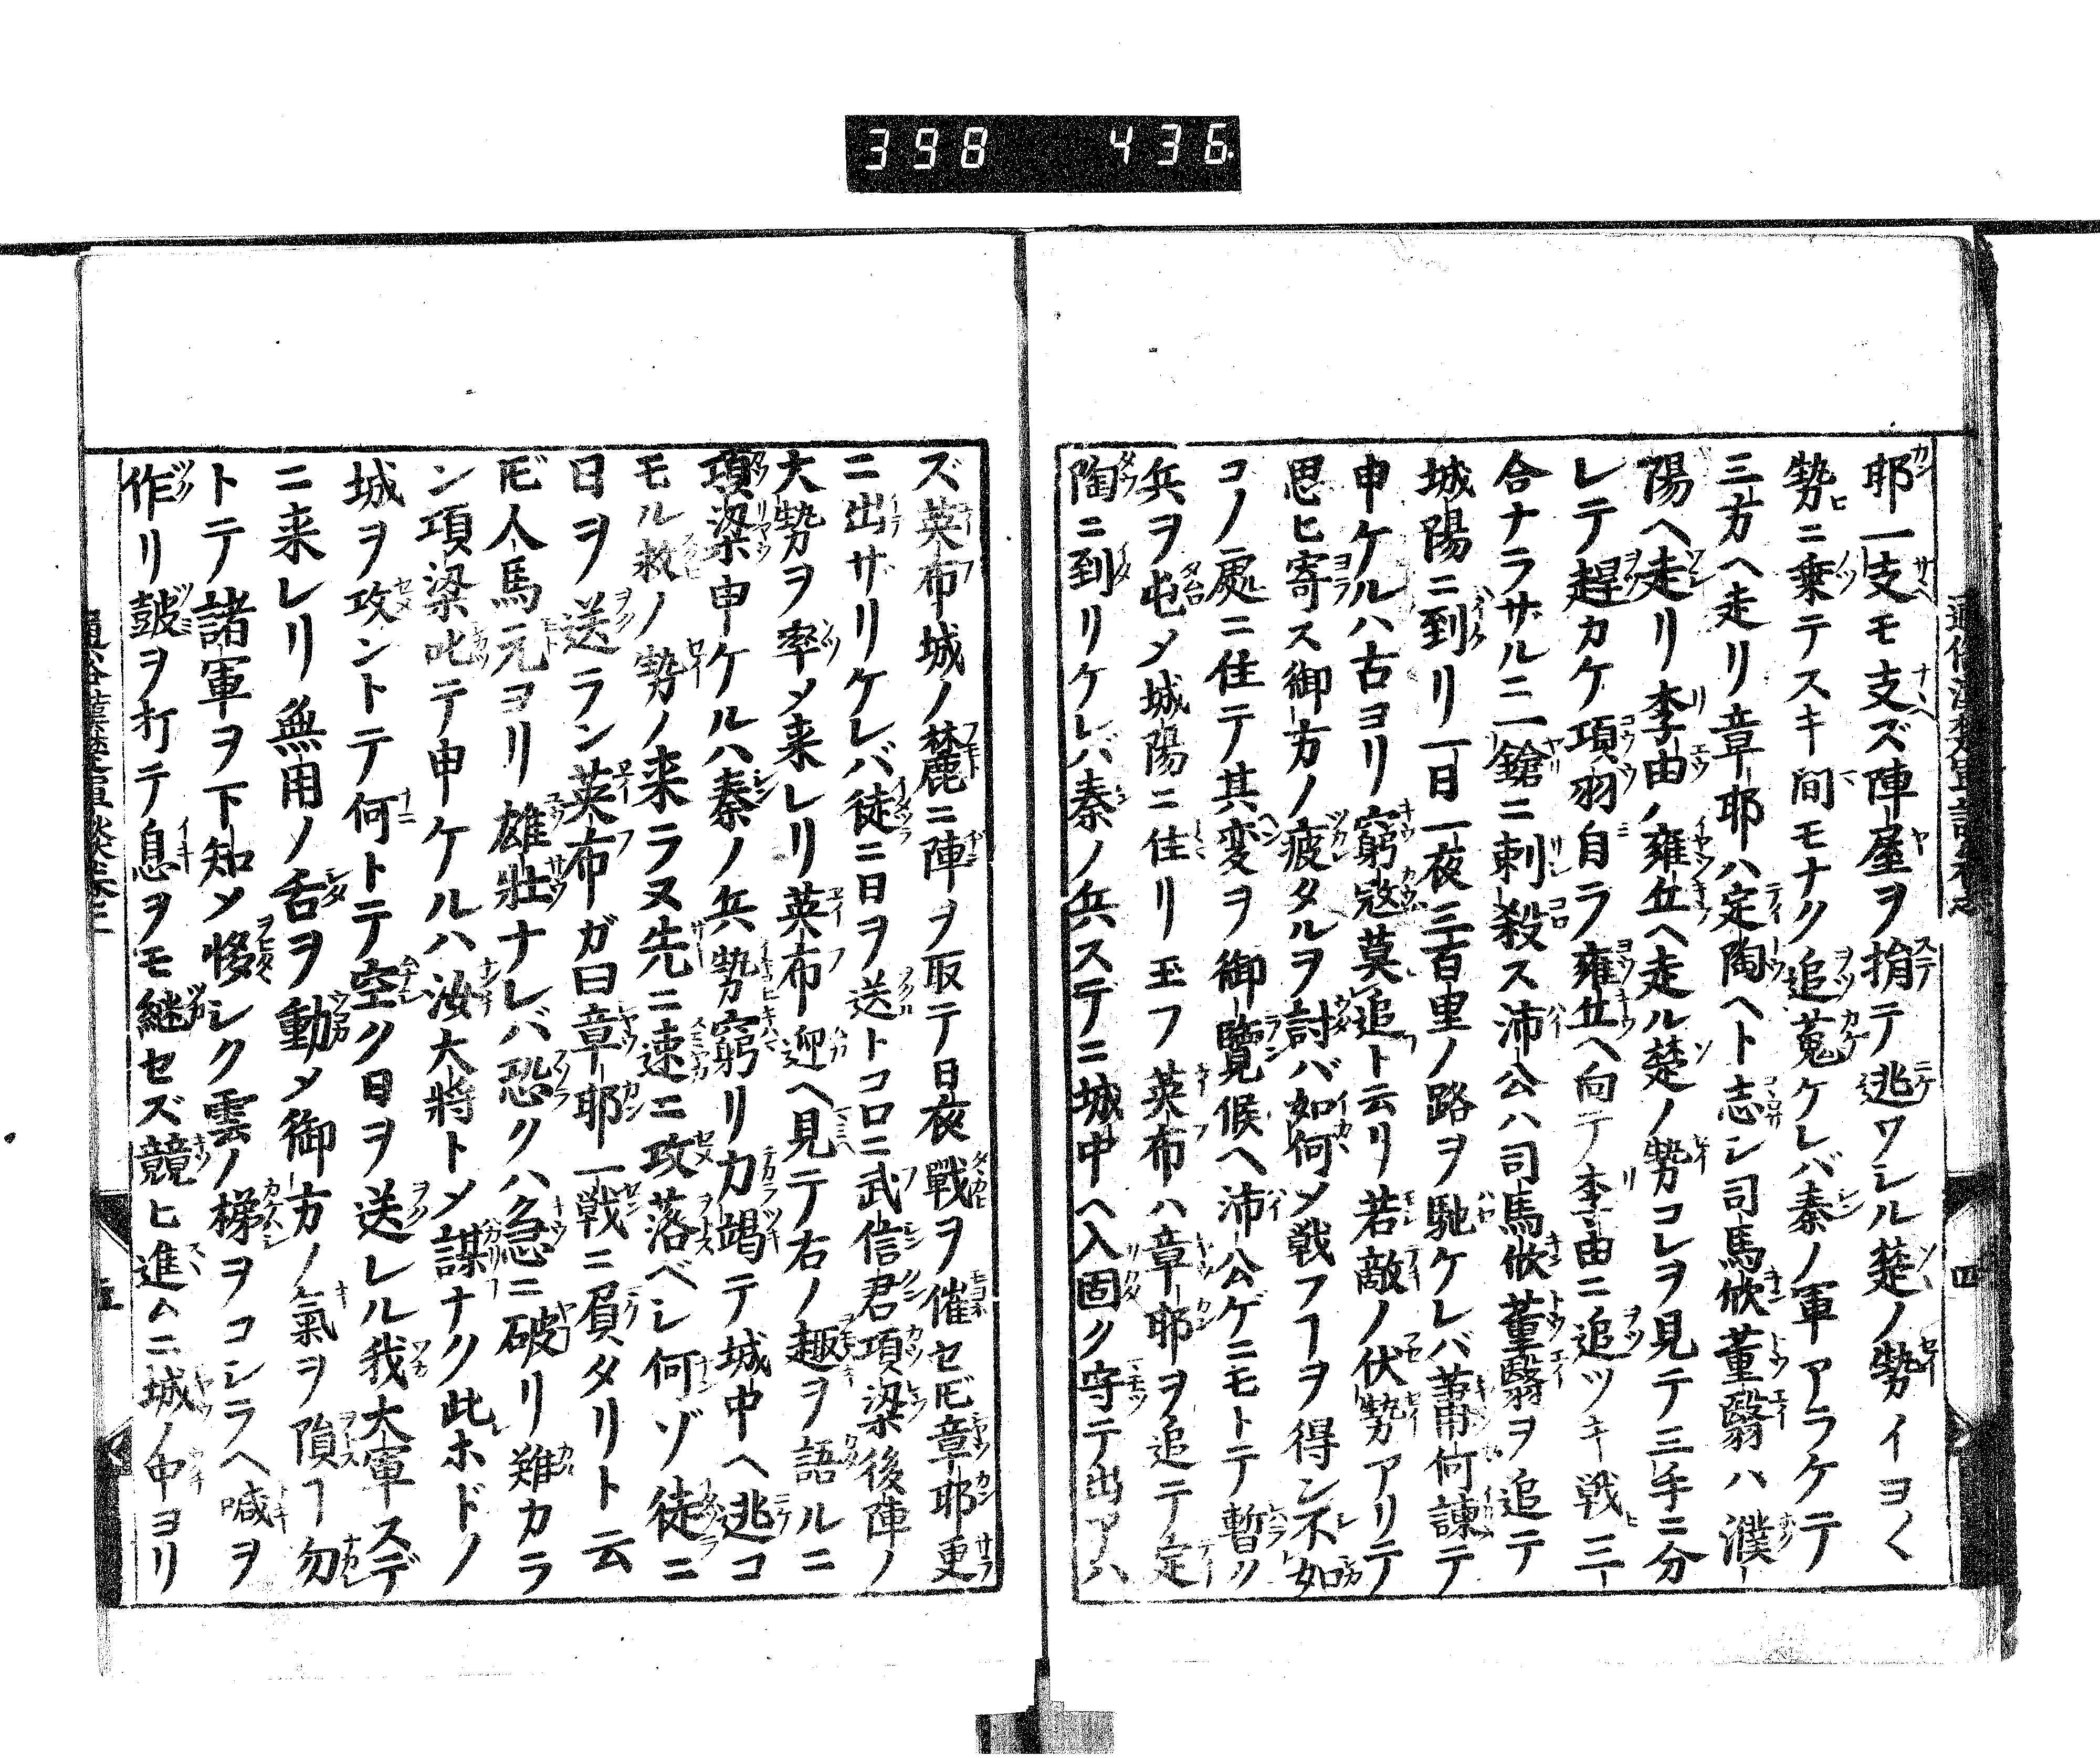 398 436
耶一支モ支ズ陣屋ヲ捐テ逃ワシル楚ノ勢イヨ〱
勢ニ乗テスキ間モナク追蒐ケレバ秦ノ軍アラケテ
三方ヘ走リ章耶ハ定陶ヘト志シ司馬欣董翳ハ濮
陽ヘ走リ李由ノ雍丘ヘ走ル楚ノ勢コレヲ見テ三手ニ分
レテ趕カケ項羽自ラ雍丘ヘ向テ李由ニ追ツキ戦三
合ナラザルニ一鎗ニ刺殺ス沛公ハ司馬欣董翳ヲ追テ
城陽ニ到リ一日一夜三百里ノ路ヲ馳ケレバ蕭何諫テ
申ケルハ古ヨリ窮寇莫追ト云リ若敵ノ伏勢アリテ
思ヒ寄ス御方ノ疲タルヲ討バ如何メ戦フヿヲ得ン不如
コノ處ニ住テ其変ヲ御覽候ヘ沛公ゲニモトテ暫ク
兵ヲ屯メ城陽ニ住リ玉フ英布ハ章耶ヲ追テ定
陶ニ到リケレバ秦ノ兵ステニ城中ヘ入固ク守テ出アハ
ズ英布城ノ麓ニ陣ヲ取テ日夜戰ヲ催セ𪜈章耶更
ニ出ザリケレバ徒ニ日ヲ送トコロニ武信君項梁後陣ノ
大勢ヲ率メ来レリ英布迎ヘ見テ右ノ趣ヲ語ルニ
項梁申ケルハ秦ノ兵勢窮リ力竭テ城中ヘ逃コ
モル救ノ勢ノ来ラヌ先ニ速ニ攻落ベシ何ゾ徒ニ
日ヲ送ラン英布ガ曰章耶一戦ニ負タリト云
𪜈人馬元ヨリ雄壯ナレバ恐クハ急ニ破リ難カラ
ン項梁叱テ申ケルハ汝大將トメ謀ナク此ホドノ
城ヲ攻ントテ何トテ空ク日ヲ送レル我大軍スデ
ニ来レリ無用ノ舌ヲ動メ御方ノ氣ヲ隕ヿ勿
トテ諸軍ヲ下知メ悽シク雲ノ梯ヲコシラヘ喊ヲ
作リ皷ヲ打テ息ヲモ継セズ競ヒ進ムニ城ノ中ヨリ